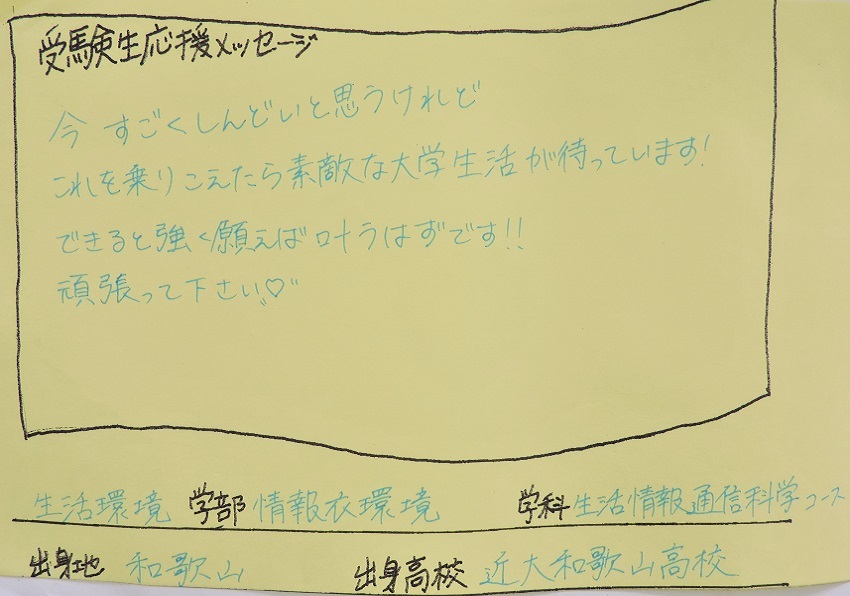 受験生応援メッセージ
今 すごくしんどいと思うけれど
これを乗りこえたら素敵な大学生活が待っています!
できると強く願えば叶うはずです!!
頑張って下さい♡
生活環境 学部 情報衣環境 学科 生活情報通信科学コース
出身地 和歌山 出身高校 近大和歌山高校